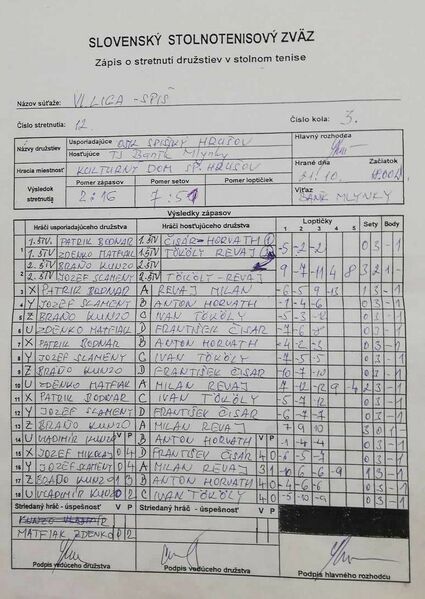 SLOVENSKÝ STOLNOTENISOVÝ ZVÄZ
Zápis o stretnutí družstiev v stolnom tenise
Názov súťaže: VI. LIGA - SPIŠ
Číslo stretnutia: 12. Číslo kola: 3.
Názvy družstiev Usporiadajúce OŠK SPIŠSKÝ HRUŠOV Hlavný rozhodca
Hosťujúce TJ Baník Mlynky
Hracia miestnosť KULTÚRNY DOM SP. HRUŠOV Hrané dňa 21.10. Začiatok
Výsledok stretnutia Pomer zápasov 2:16 Pomer setov 7:51 Pomer loptičiek Víťaz BANÍK MLYNKY
Výsledky zápasov
Hráči usporiadajúceho družstva Hráči hosťujúceho družstva Loptičky Sety Body
1 2 3 4 5
1 1.ŠTV PATRIK BODNAR 1.ŠTV ČISÁR - HORVATH -5 -2 -2 0 3 -1
1.ŠTV ZDENKO MATFIAK 1.ŠTV TÖKÖLY REVAJ
2 2.ŠTV BRAŇO KUNZO 2.ŠTV 9 -7 -11 4 8 3 2 1 -
2.ŠTV JOZEF SLAMENÝ 2.ŠTV TÖKÖLY - REVAJ
3 X PATRIK BODNAR A REVAJ MILAN -6 -5 9 -13 1 3 -1
4 Y JOZEF SLAMENÝ B ANTON HORVATH -1 -4 -6 0 3 -1
5 Z BRAŇO KUNZO C IVAN TÖKÖLY 0 3 -1
6 U ZDENKO MATFIAK D FRANTIŠEK ČISAR -7 -6 0 3 -1
7 X PATRIK BODNAR B ANTON HORVATH -4 -2 -3 0 3 -1
8 Y JOZEF SLAMENÝ C IVAN TÖKÖLY -7 -5 -5 0 3 -1
9 Z BRAŇO KUNZO D FRANTIŠEK ČISAR -10 -7 -7 0 3 -1
10 U ZDENKO MATFIAK A MILAN REVAJ 9 -4
11 X PATRIK BODNAR C IVAN TÖKÖLY 0 3 -1
12 Y JOZEF SLAMENÝ D FRANTIŠEK ČISAR -6 -7 -7 0 3 -1
13 Z BRAŇO KUNZO A MILAN REVAJ 7 9 10 3 0 1 -
14 U VLADIMÍR KUNZO V P B ANTON HORVATH V P -1 -4 -4 0 3 -1
15 X JOZEF 0 4 D FRANTIŠEK ČISAR 4 0 0 3 -1
16 Y JOZEF SLAMENÝ 0 4 A MILAN REVAJ 1 3 -1
17 Z BRAŇO KUNZO 1 3 B ANTON HORVATH 4 0 0 3 -1
18 U VLADIMÍR KUNZO 0 2 C IVAN TÖKÖLY 4 0 -5 -10 -9 0 3 -1
Striedaný hráč - úspešnosť V P Striedaný hráč - úspešnosť V P
KUNZO VLADIMÍR
MATFIAK ZDENKO 0 2
Podpis vedúceho družstva Podpis vedúceho družstva Podpis hlavného rozhodcu